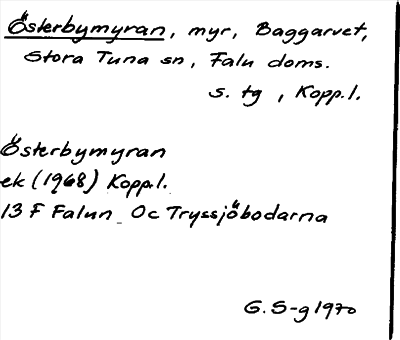 Österbymyran, myr, Baggarvet,
Stora Tuna sn, Falu doms.
s. tg, Kopp.l.
Österbymyran
ek (1968) Kopp.l.
13 F Falun Oc Tryssjöbodarna
G. S-g 1970